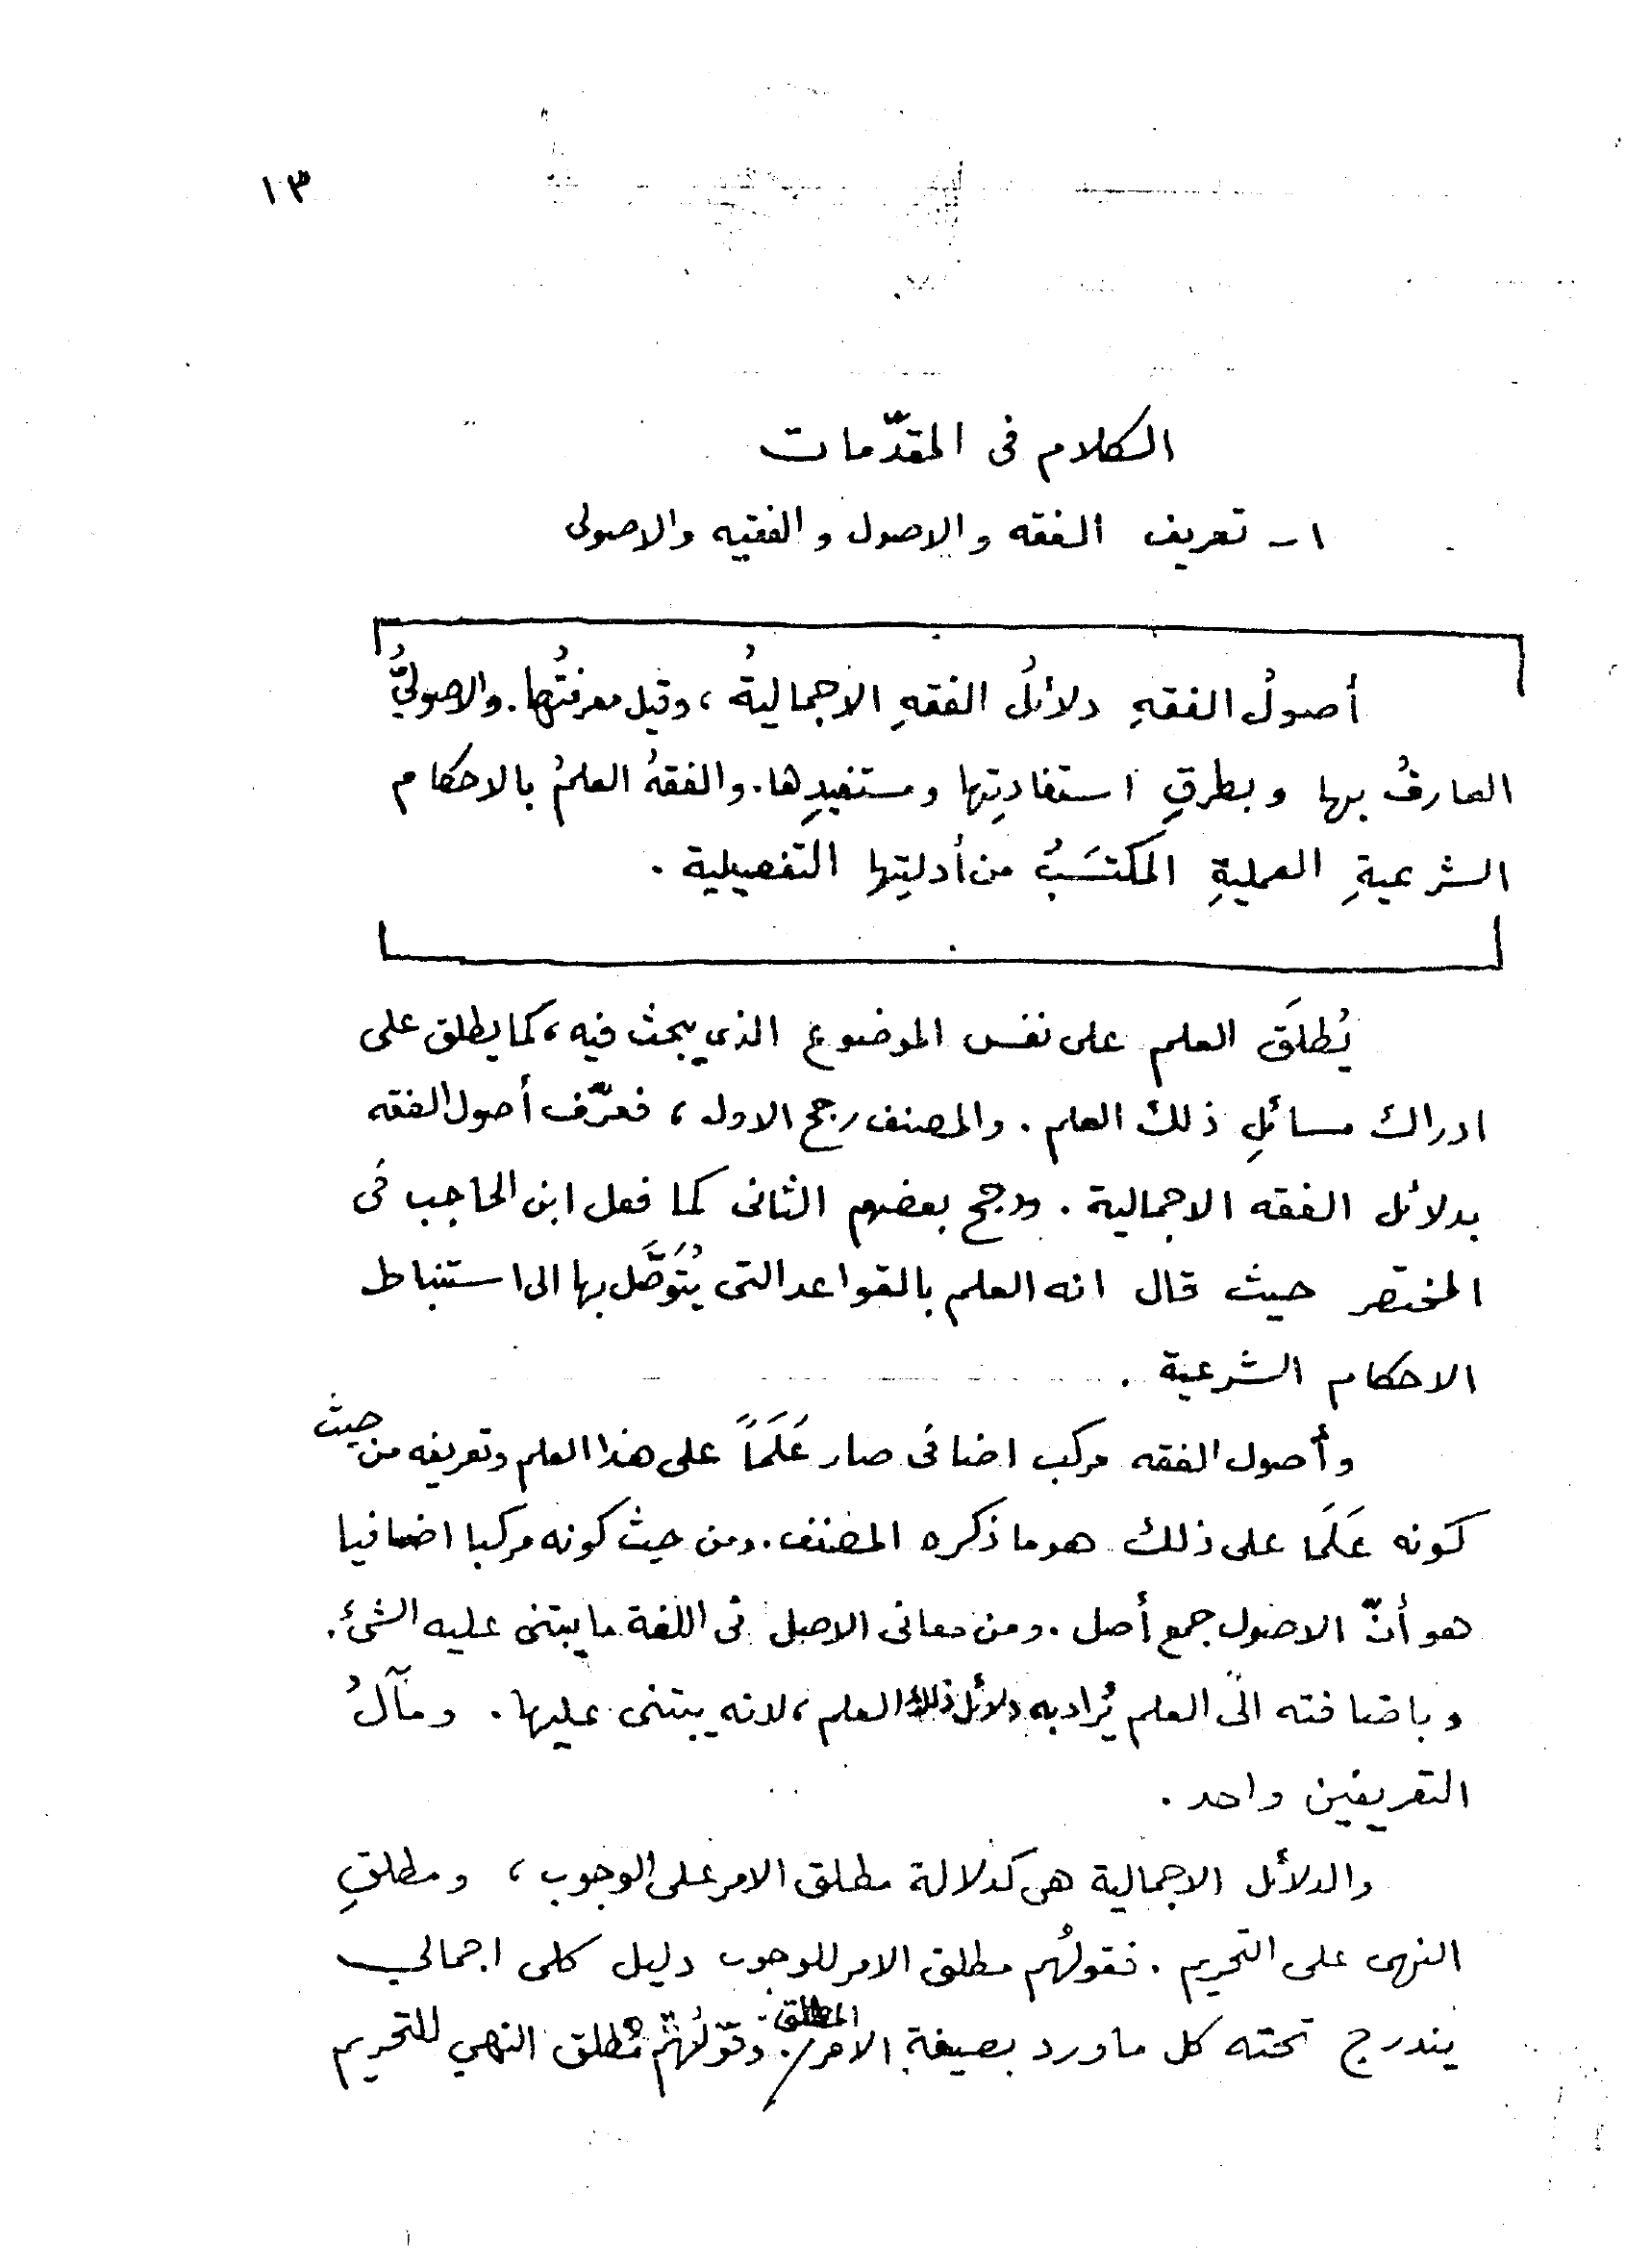 ١٣
الكلام فى المقدّمات
١ـ تعريف الفقه والاصول والفقيه والاصولى
أصولُ الفقهِ دلائلُ الفقهِ الاجماليةُ، وقيل معرفتُها. والاصوليُّ
العارفُ بها وبطرقِ استفادتِها ومستفيدِها. والفقهُ العلمُ بالاحكام
الشرعيةِ العمليةِ المكتسَبُ من أدلتِها التفصيلية.
يُطلَق العلم على نفس الموضوع الذي يبحث فيه، كما يطلق على
ادراك مسائلِ ذلك العلم. والمصنف رجح الاول، فعرّف أصول الفقه
بدلائل الفقه الاجمالية. ورجح بعضهم الثانى كما فعل ابن الحاجب فى
المختصر حيث قال انه العلم بالقواعد التى يُتَوَصَّل بها الى استنباط
الاحكام الشرعية.
وأصول الفقه مركب اضافى صار عَلَمَاً على هذا العلم وتعريفه من حيث
كونه عَلَمَا على ذلك هو ما ذكره المصنف. ومن حيث كونه مركبا اضافيا
هو أنّ الاصول جمع أصل. ومن معانى الاصل فى اللغة ما يبتنى عليه الشئ.
وباضافته الى العلم يُراد به دلائل ذلك العلم، لانه يبتنى عليها. ومآلُ
التعريفين واحد.
والدلائل الاجمالية هى كدلالة مطلق الامر على الوجوب، ومطلقِ
النهى على التحريم. فقولُهم مطلق الامر للوجوب دليل كلى اجمالي
يندرج تحته كل ما ورد بصيغة الامر المطلق. وقولُهم مُطلق النهي للتحريم